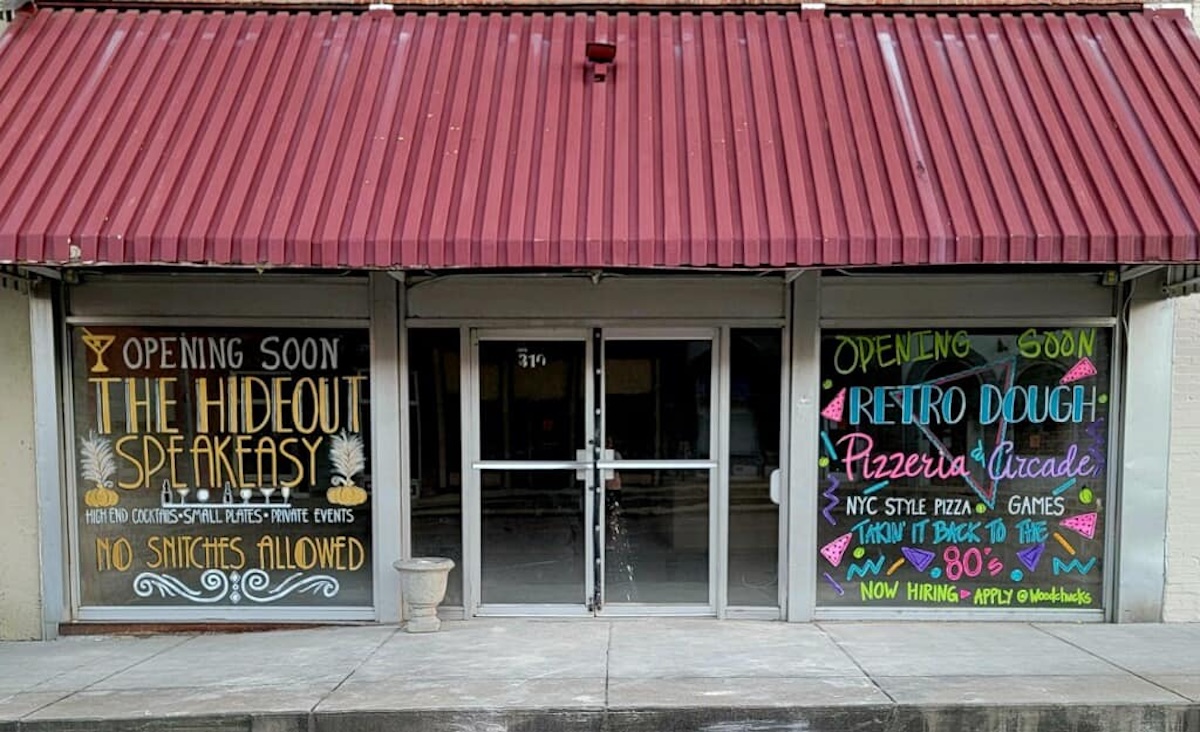 OPENING SOON
THE HIDEOUT
SPEAKEASY
HIGH END COCKTAILS • SMALL PLATES • PRIVATE EVENTS
NO SNITCHES ALLOWED
319
OPENING SOON
RETRO DOUGH
Pizzeria & Arcade
NYC STYLE PIZZA GAMES
TAKIN' IT BACK TO THE
80's
NOW HIRING APPLY @ Woodchucks